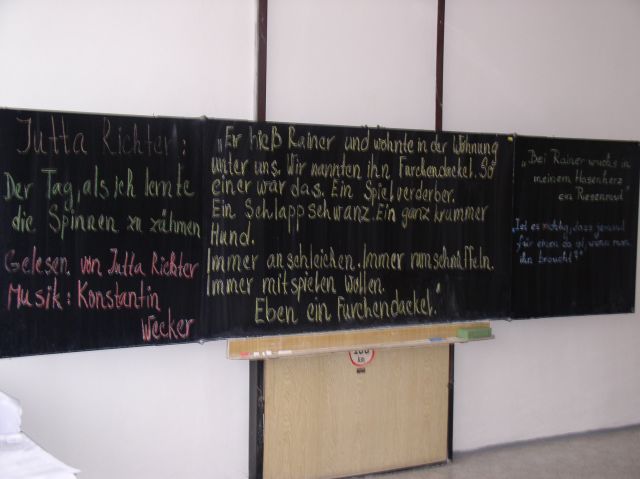 Jutta Richter:
Der Tag, als ich lernte
die Spinnen zu zähmen
Gelesen von Jutta Richter
Musik: Konstantin
Wecker
„Er hieß Rainer und wohnte in der Wohnung
unter uns. Wir nannten ihn Furchendackel. So
einer war das. Ein Spielverderber.
Ein Schlappschwanz. Ein ganz krummer
Hund.
Immer anschleichen. Immer rumschnüffeln.
Immer mitspielen wollen.
Eben ein Furchendackel."
„Bei Rainer wuchs in
meinem Hasenherz
ein Riesenmut"
„Ist es nötig, dass jemand
für einen da ist, wenn man
ihn braucht?"
100
km